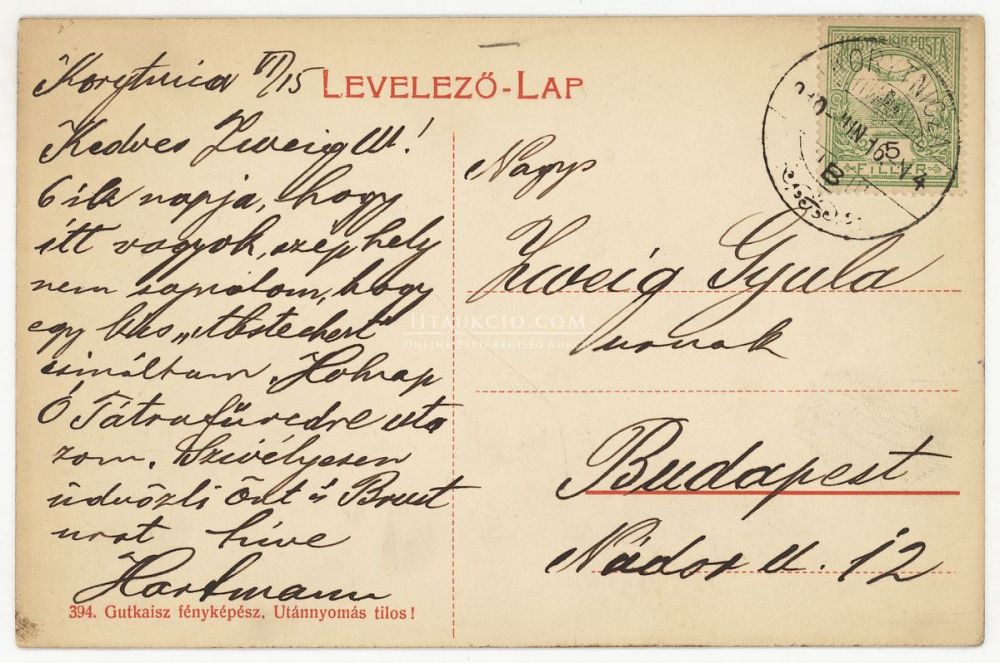 Korytnica VI/15
LEVELEZŐ-LAP
Kedves Zweig Úr!
6ik napja, hogy
itt vagyok, szép hely
nem sajnálom, hogy
egy kis „Abstechert"
csináltam. Holnap
Ó Tátrafüredre uta
zom. Szívélyesen
üdvözli Önt és
urat híve
Hartmann
394. Gutkaisz fényképész. Utánnyomás tilos!
Nagys
Zweig Gyula
urnak
Budapest
Nádor u. 12
MAGYAR KIR POSTA
5
FILLÉR
JUN 16
B
HTAUKCIO.COM
ONLINE PAPÍRRÉGISÉG AUKCIÓ